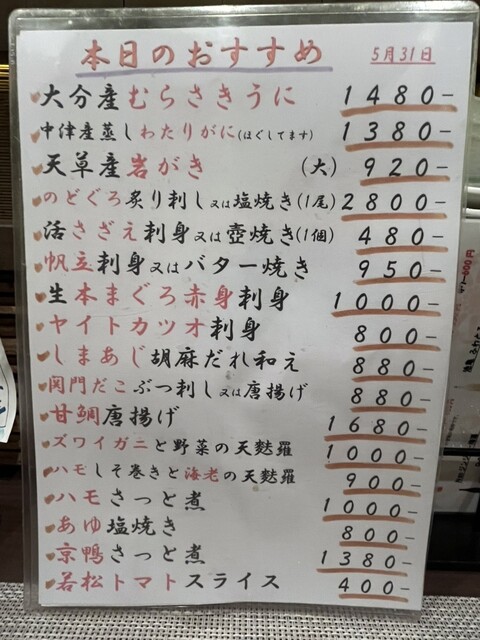 本日のおすすめ 5月31日
大分産むらさきうに 1480-
中津産蒸しわたりがに(ほぐしてます) 1380-
天草産岩がき (大) 920-
のどぐろ炙り刺し又は塩焼き(1尾) 2800-
活さざえ刺身又は壺焼き(1個) 480-
帆立刺身又はバター焼き 950-
生本まぐろ赤身刺身 1000-
ヤイトカツオ刺身 800-
しまあじ胡麻だれ和え 880-
関門だこぶつ刺し又は唐揚げ 880-
甘鯛唐揚げ 1680-
ズワイガニと野菜の天麩羅 1000-
ハモしそ巻きと海老の天麩羅 900-
ハモさっと煮 1000-
あゆ塩焼き 800-
京鴨さっと煮 1380-
若松トマトスライス 400-